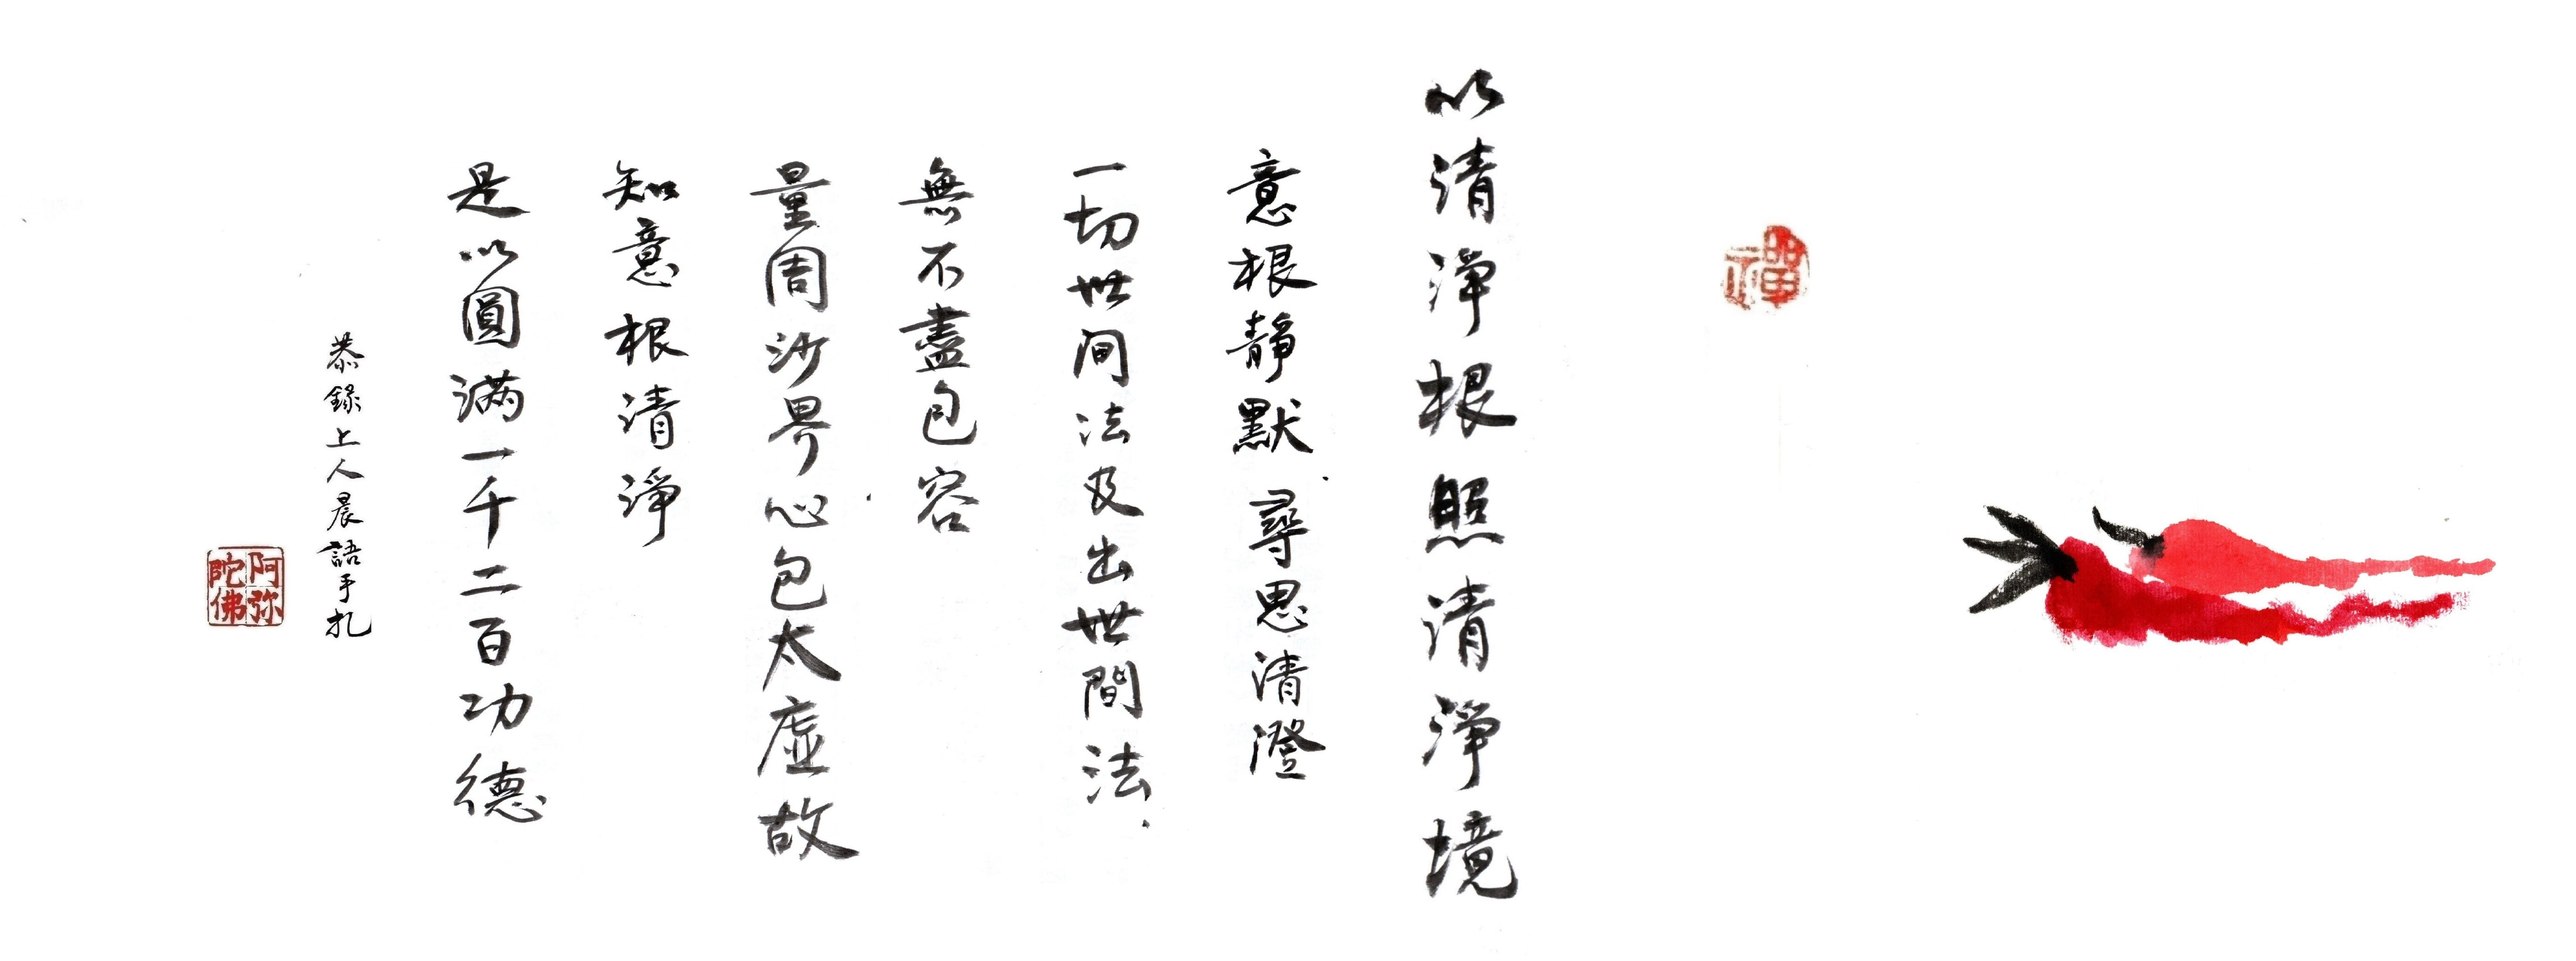 禪
以清淨根照清淨境
意根靜默尋思清澄
一切世间法及出世間法
無不盡包容
量周沙界心包太虛故
知意根清淨
是以圓滿一千二百功德
恭錄上人晨語手札
阿弥陀佛